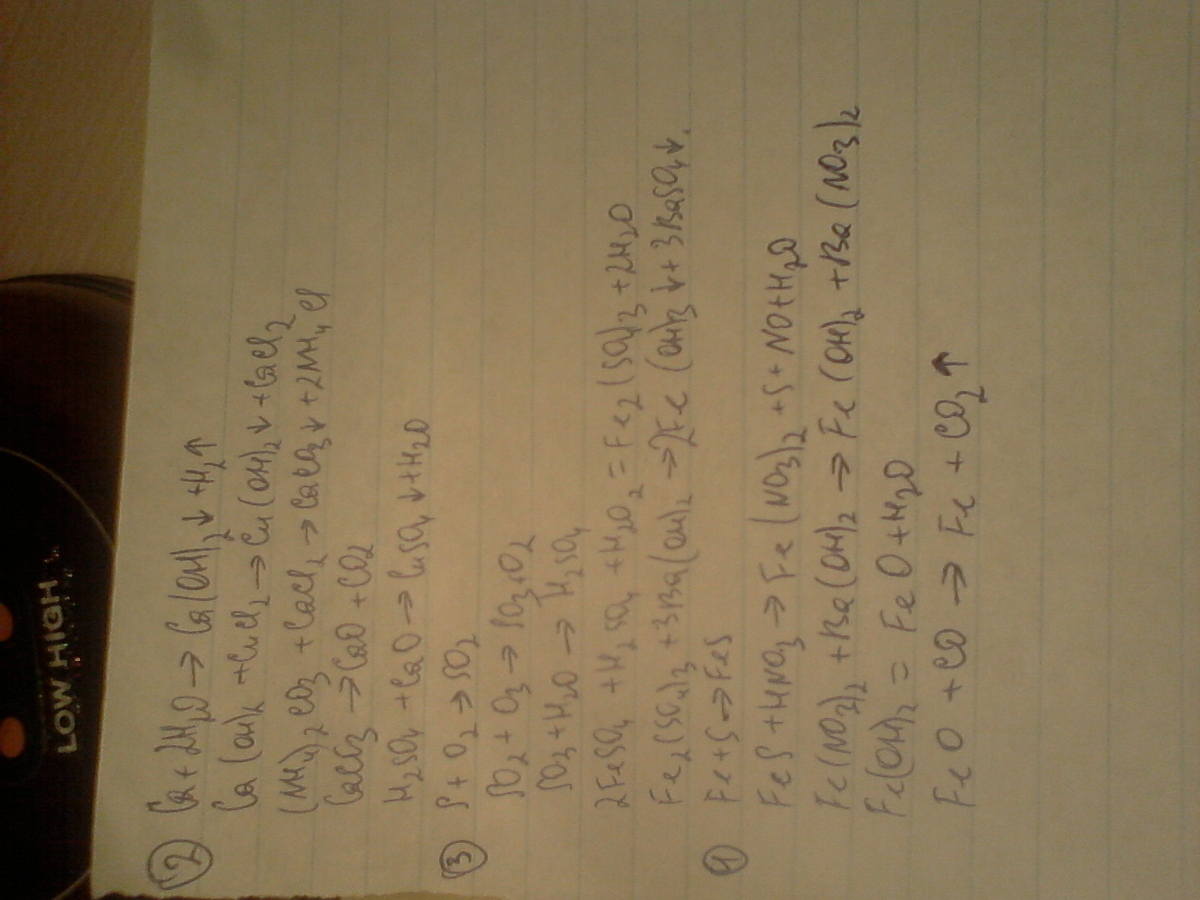 ② Ca + 2H₂O → Ca(OH)₂↓ + H₂↑
Ca(OH)₂ + CuCl₂ → Cu(OH)₂↓ + CaCl₂
(NH₄)₂CO₃ + CaCl₂ → CaCO₃↓ + 2NH₄Cl
CaCO₃ → CaO + CO₂
H₂SO₄ + CaO → CaSO₄↓ + H₂O
③ S + O₂ → SO₂
SO₂ + O₃ → SO₃ + O₂
SO₃ + H₂O → H₂SO₄
2FeSO₄ + H₂SO₄ + H₂O₂ = Fe₂(SO₄)₃ + 2H₂O
Fe₂(SO₄)₃ + 3Ba(OH)₂ → 2Fe(OH)₃↓ + 3BaSO₄↓.
④ Fe + S → FeS
FeS + HNO₃ → Fe(NO₃)₂ + S + NO + H₂O
Fe(NO₃)₂ + Ba(OH)₂ → Fe(OH)₂ + Ba(NO₃)₂
Fe(OH)₂ = FeO + H₂O
FeO + CO → Fe + CO₂↑
LOW HIGH